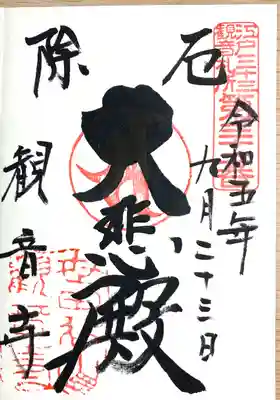 江戸三十三
観音札所
厄
令和五年
九月二十三日
大悲殿
除
観音寺